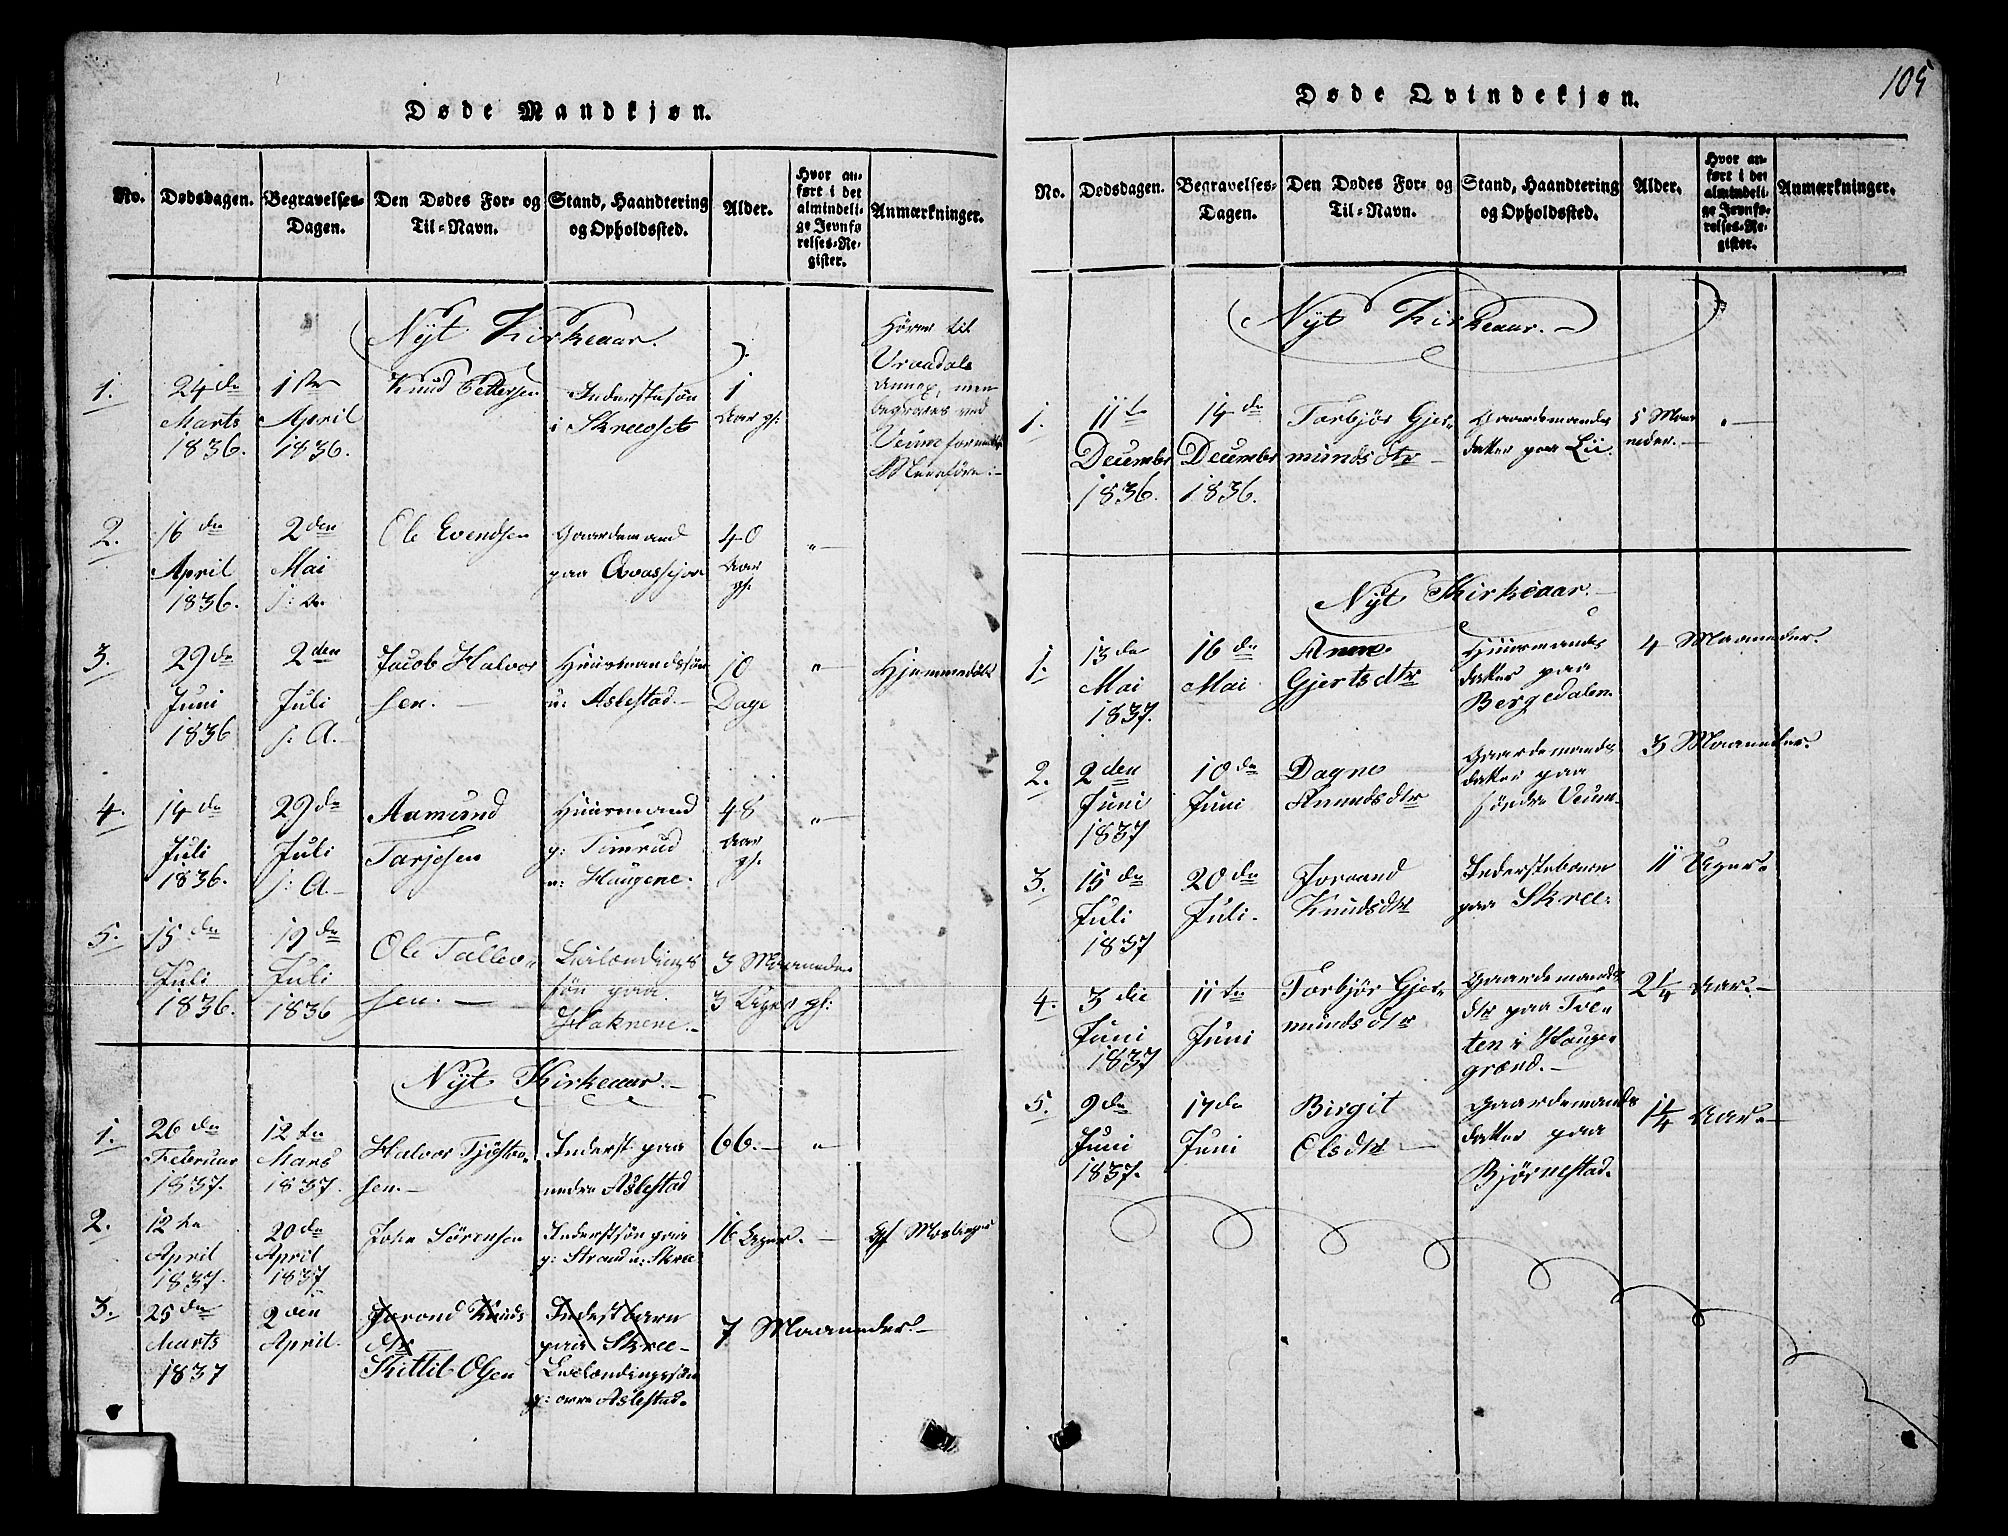 Døde Mandkjøn.
No.
Dødsdagen.
Begravelses-
Dagen.
Den Dødes For- og
Til-Navn.
Stand, Haandtering
og Opholdssted.
Alder.
Hvor an-
ført i det
almindeli-
ge Jevnfø
relses-Re-
gister.
Anmærkninger.
Nyt Kirkeaar.
1.
24de
Marts
1836.
1ste
April
1836.
Knud
Inderstesøn
i
1
Aar gl:
Hører til
Annex, men
begraves ved
Veum
2.
16de
April
1836.
2den
Mai
s: A.
Ole Evendsen
Gaardemand
paa
40
Aar
gl:
3.
29de
Juni
1836
2den
Juli
s: A.
Jacob Halvor
sen.
Huusmandssøn
u: Aslestad.
10
Dage
Hjemmedøbt
4.
14de
Juli
1836.
29de
Juli
s: A.
Aamund
Tarjesen
Huusmand
p: Timrud
u: Haugene.
48
Aar
gl:
5.
15de
Juli
1836.
19de
Juli
1836
Ole Tallev-
sen.
søn paa
Haknene.
3 Maaneder
3 Uger gl:
Nyt Kirkeaar.
1.
26de
Februar
1837.
12te
Mars
1837.
Halvor
sen.
Inderst paa
nedre Aslestad
66.
2.
12te
April
1837.
20de
April
1837
John Sörensen
Inderstsøn paa
p: Strand u: Skree
16 Uger.
3.
25de
Marts
1837
2den
April.
Jorond Knuds
dtr
Kittil Olsen
Inderstbarn
paa Skree
p: øvre Aslestad.
7 Maaneder.
105
Døde Qvindekjøn.
No.
Dødsdagen.
Begravelses-
Dagen.
Den Dødes For- og
Til-Navn.
Stand, Haandtering
og Opholdssted.
Alder.
Hvor an-
ført i det
almindeli-
ge Jevnfø-
relses-Re-
gister.
Anmærkninger.
Nyt Kirkeaar.
1.
11te
Decembr
1836.
14de
Decembr
1836.
Torbjör Gjer-
mundsdtr
Gaardemands
datter paa Lii.
5 Maa-
neder.
Nyt Kirkeaar.
1.
13de
Mai
1837.
16de
Mai
Anne
Gjertsdtr
Huusmands
datter paa
Bergedalen
4 Maaneder.
2.
2den
Juni
1837
10de
Juni
Dagne
Amundsdtr
Gaardemands
datter paa
søndre Veum.
3 Maaneder.
3.
15de
Juli
1837
20de
Juli.
Joraand
Knudsdtr
Inderstebarn
paa Skree.
11 Uger.
4.
3die
Juni
1837
11te
Juni
Torbjör Gjer-
mundsdtr
Gaardemands
dtr paa Tve-
ten i Hauge-
grænd.
2 1/4 Aar.
5.
9de
Juni
1837.
17de
Juni
Birgit
Olsdtr
Gaardemands
datter paa
Bjørnestad.
1 1/4 Aar.